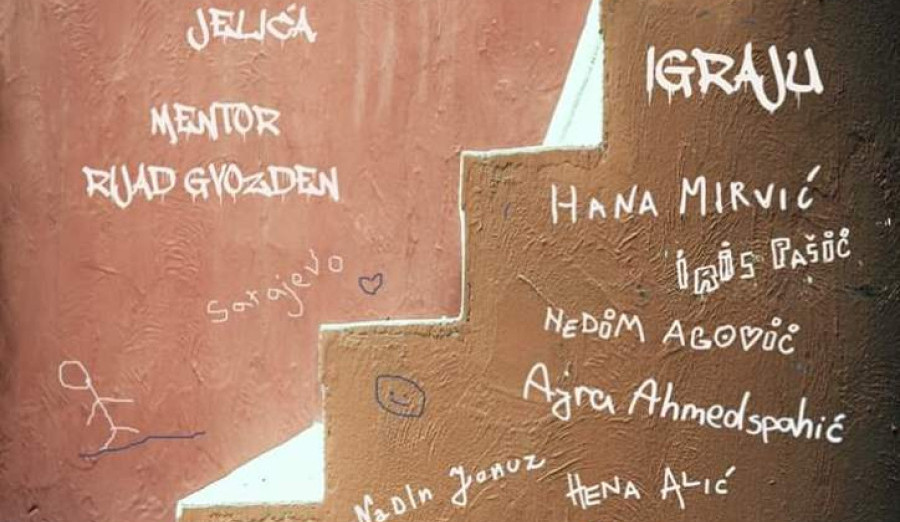 JELIĆA
MENTOR
RIJAD GVOZDEN
Sarajevo
IGRAJU
HANA MIRVIĆ
IRIS PAŠIĆ
NEDIM AGOVIĆ
Ajra Ahmedspahić
NaDIn Januz
HENA ALIĆ